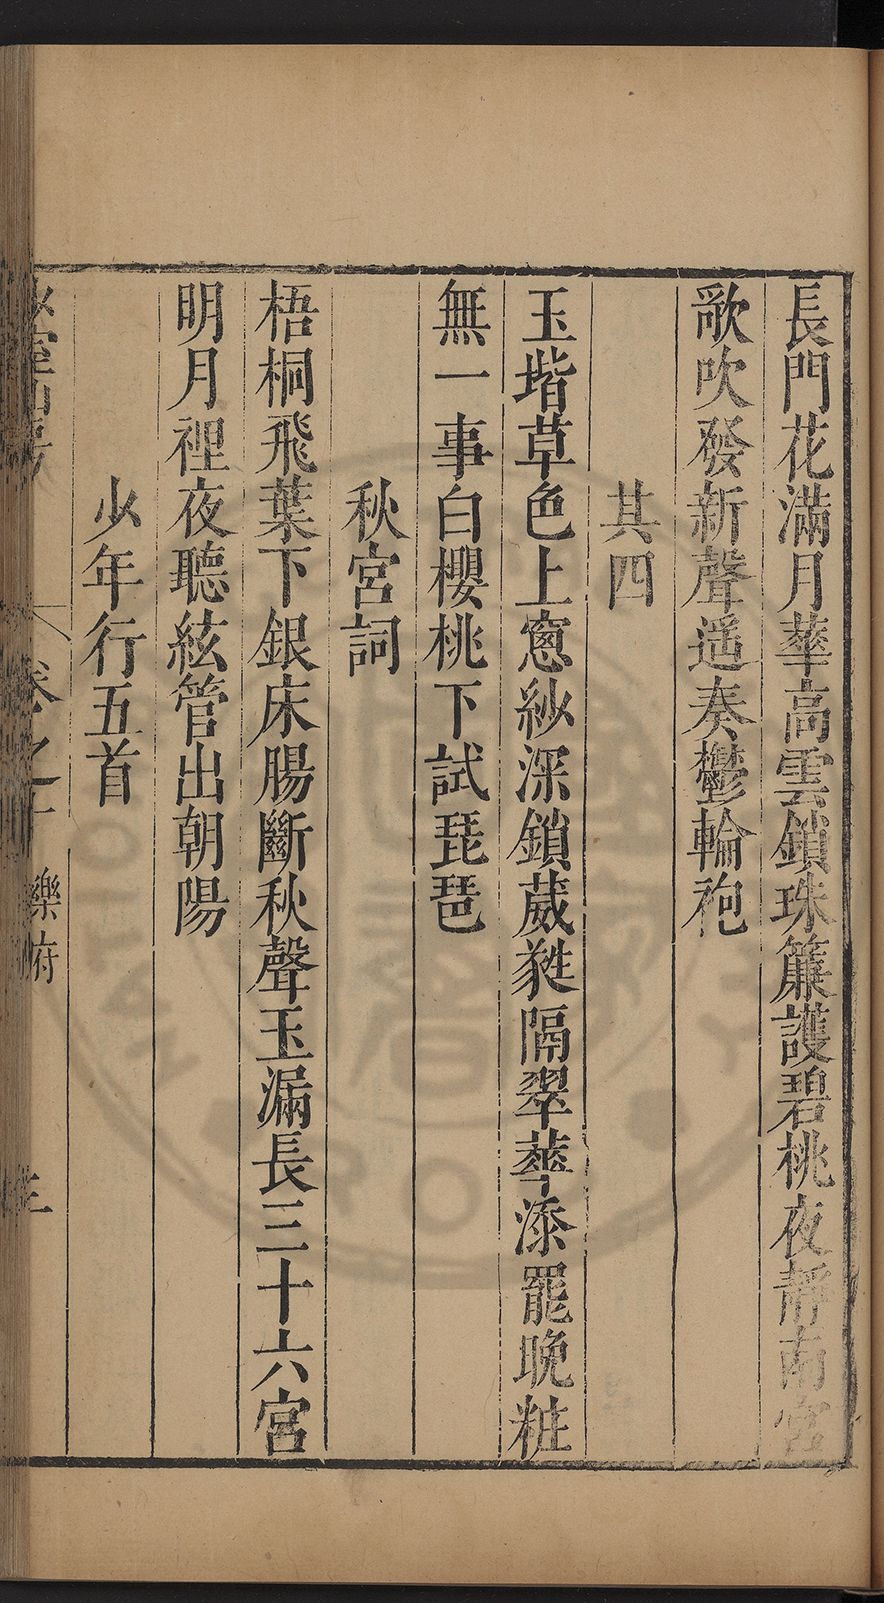 長門花滿月華高雲鎖珠簾護碧桃夜靜南宮
歌吹發新聲遥奏鬱輪袍
其四
玉堦草色上窻紗深鎖葳蕤隔翠華添罷晚粧
無一事白櫻桃下試琵琶
秋宮詞
梧桐飛葉下銀床腸斷秋聲玉漏長三十六宮
明月裡夜聽絃管出朝陽
少年行五首
卷之十 樂府